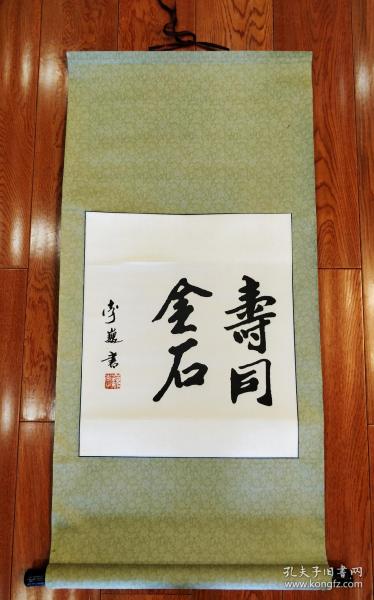 壽同
金石
孔夫子旧书网
www.kongfz.com